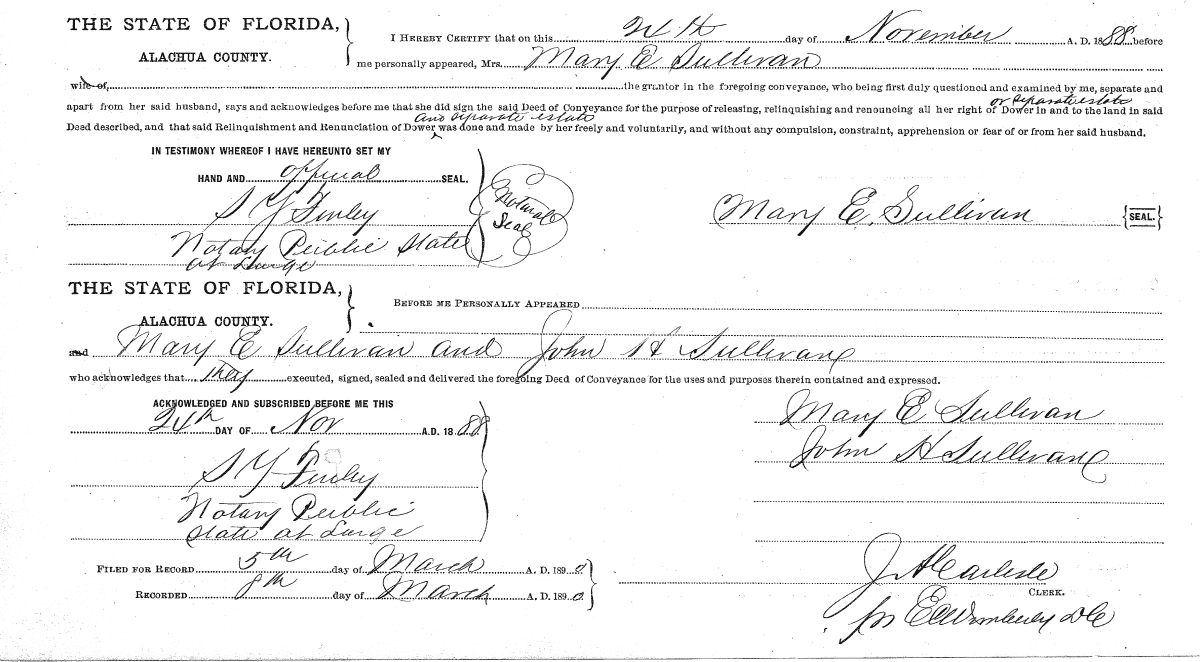 THE STATE OF FLORIDA,
ALACHUA COUNTY.
I HEREBY CERTIFY that on this 24th day of November A. D. 1888 before
me personally appeared, Mrs. Mary E Sullivan
wife of, the grantor in the foregoing conveyance, who being first duly questioned and examined by me, separate and
apart from her said husband, says and acknowledges before me that she did sign the said Deed of Conveyance for the purpose of releasing, relinquishing and renouncing all her right of Dower or separate estate in and to the land in said
Deed described, and that said Relinquishment and Renunciation of Dower and separate estate was done and made by her freely and voluntarily, and without any compulsion, constraint, apprehension or fear of or from her said husband.
IN TESTIMONY WHEREOF I HAVE HEREUNTO SET MY
HAND AND official SEAL.
S Y Finley
Notary Public State
at Large
Notarial
Seal
Mary E. Sullivan {SEAL.}
THE STATE OF FLORIDA,
ALACHUA COUNTY.
BEFORE ME PERSONALLY APPEARED
and Mary E Sullivan and John H Sullivan
who acknowledges that they executed, signed, sealed and delivered the foregoing Deed of Conveyance for the uses and purposes therein contained and expressed.
ACKNOWLEDGED AND SUBSCRIBED BEFORE ME THIS
24th DAY OF Nov A.D. 1888
S Y Finley
Notary Public
State at Large
Mary E Sullivan
John H Sullivan
FILED FOR RECORD 5th day of March A. D. 1890
RECORDED 8th day of March A. D. 1890.
J A Carlisle
CLERK.
for E C Wimberly D C